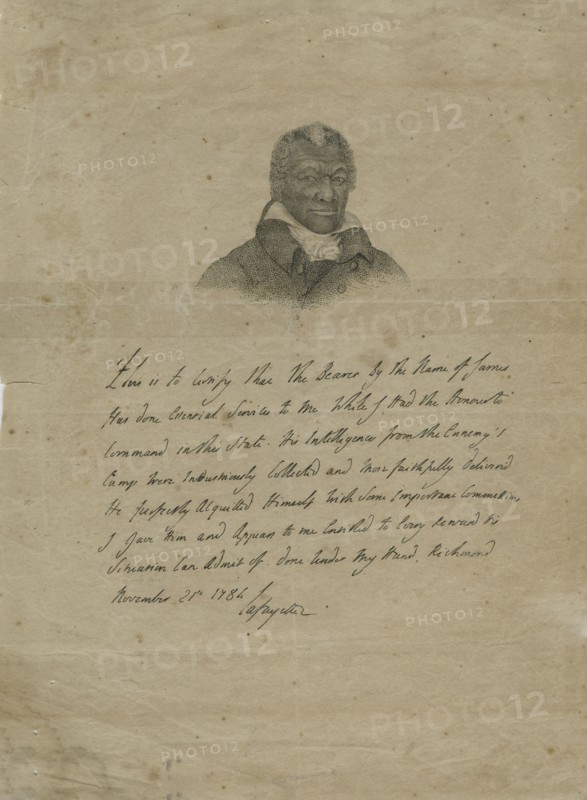 This is to Certify that the Bearer By the Name of James
Has done Essential Services to Me While I Had the Honour to
Command in this State. His Intelligences from the Ennemy's
Camp were Industriously Collected and More faithfully deliver'd
He perfectly Acquitted Himself with Some Important Commissions
I Gave Him and Appears to me Entitled to Every Reward his
Situation Can Admit of. Done Under My Hand, Richmond
November 21st 1784
Lafayette
PHOTO12
PHOTO12
PHOTO12
PHOTO12
PHOTO12
PHOTO12
PHOTO12
PHOTO12
PHOTO12
PHOTO12
PHOTO12
PHOTO12
PHOTO12